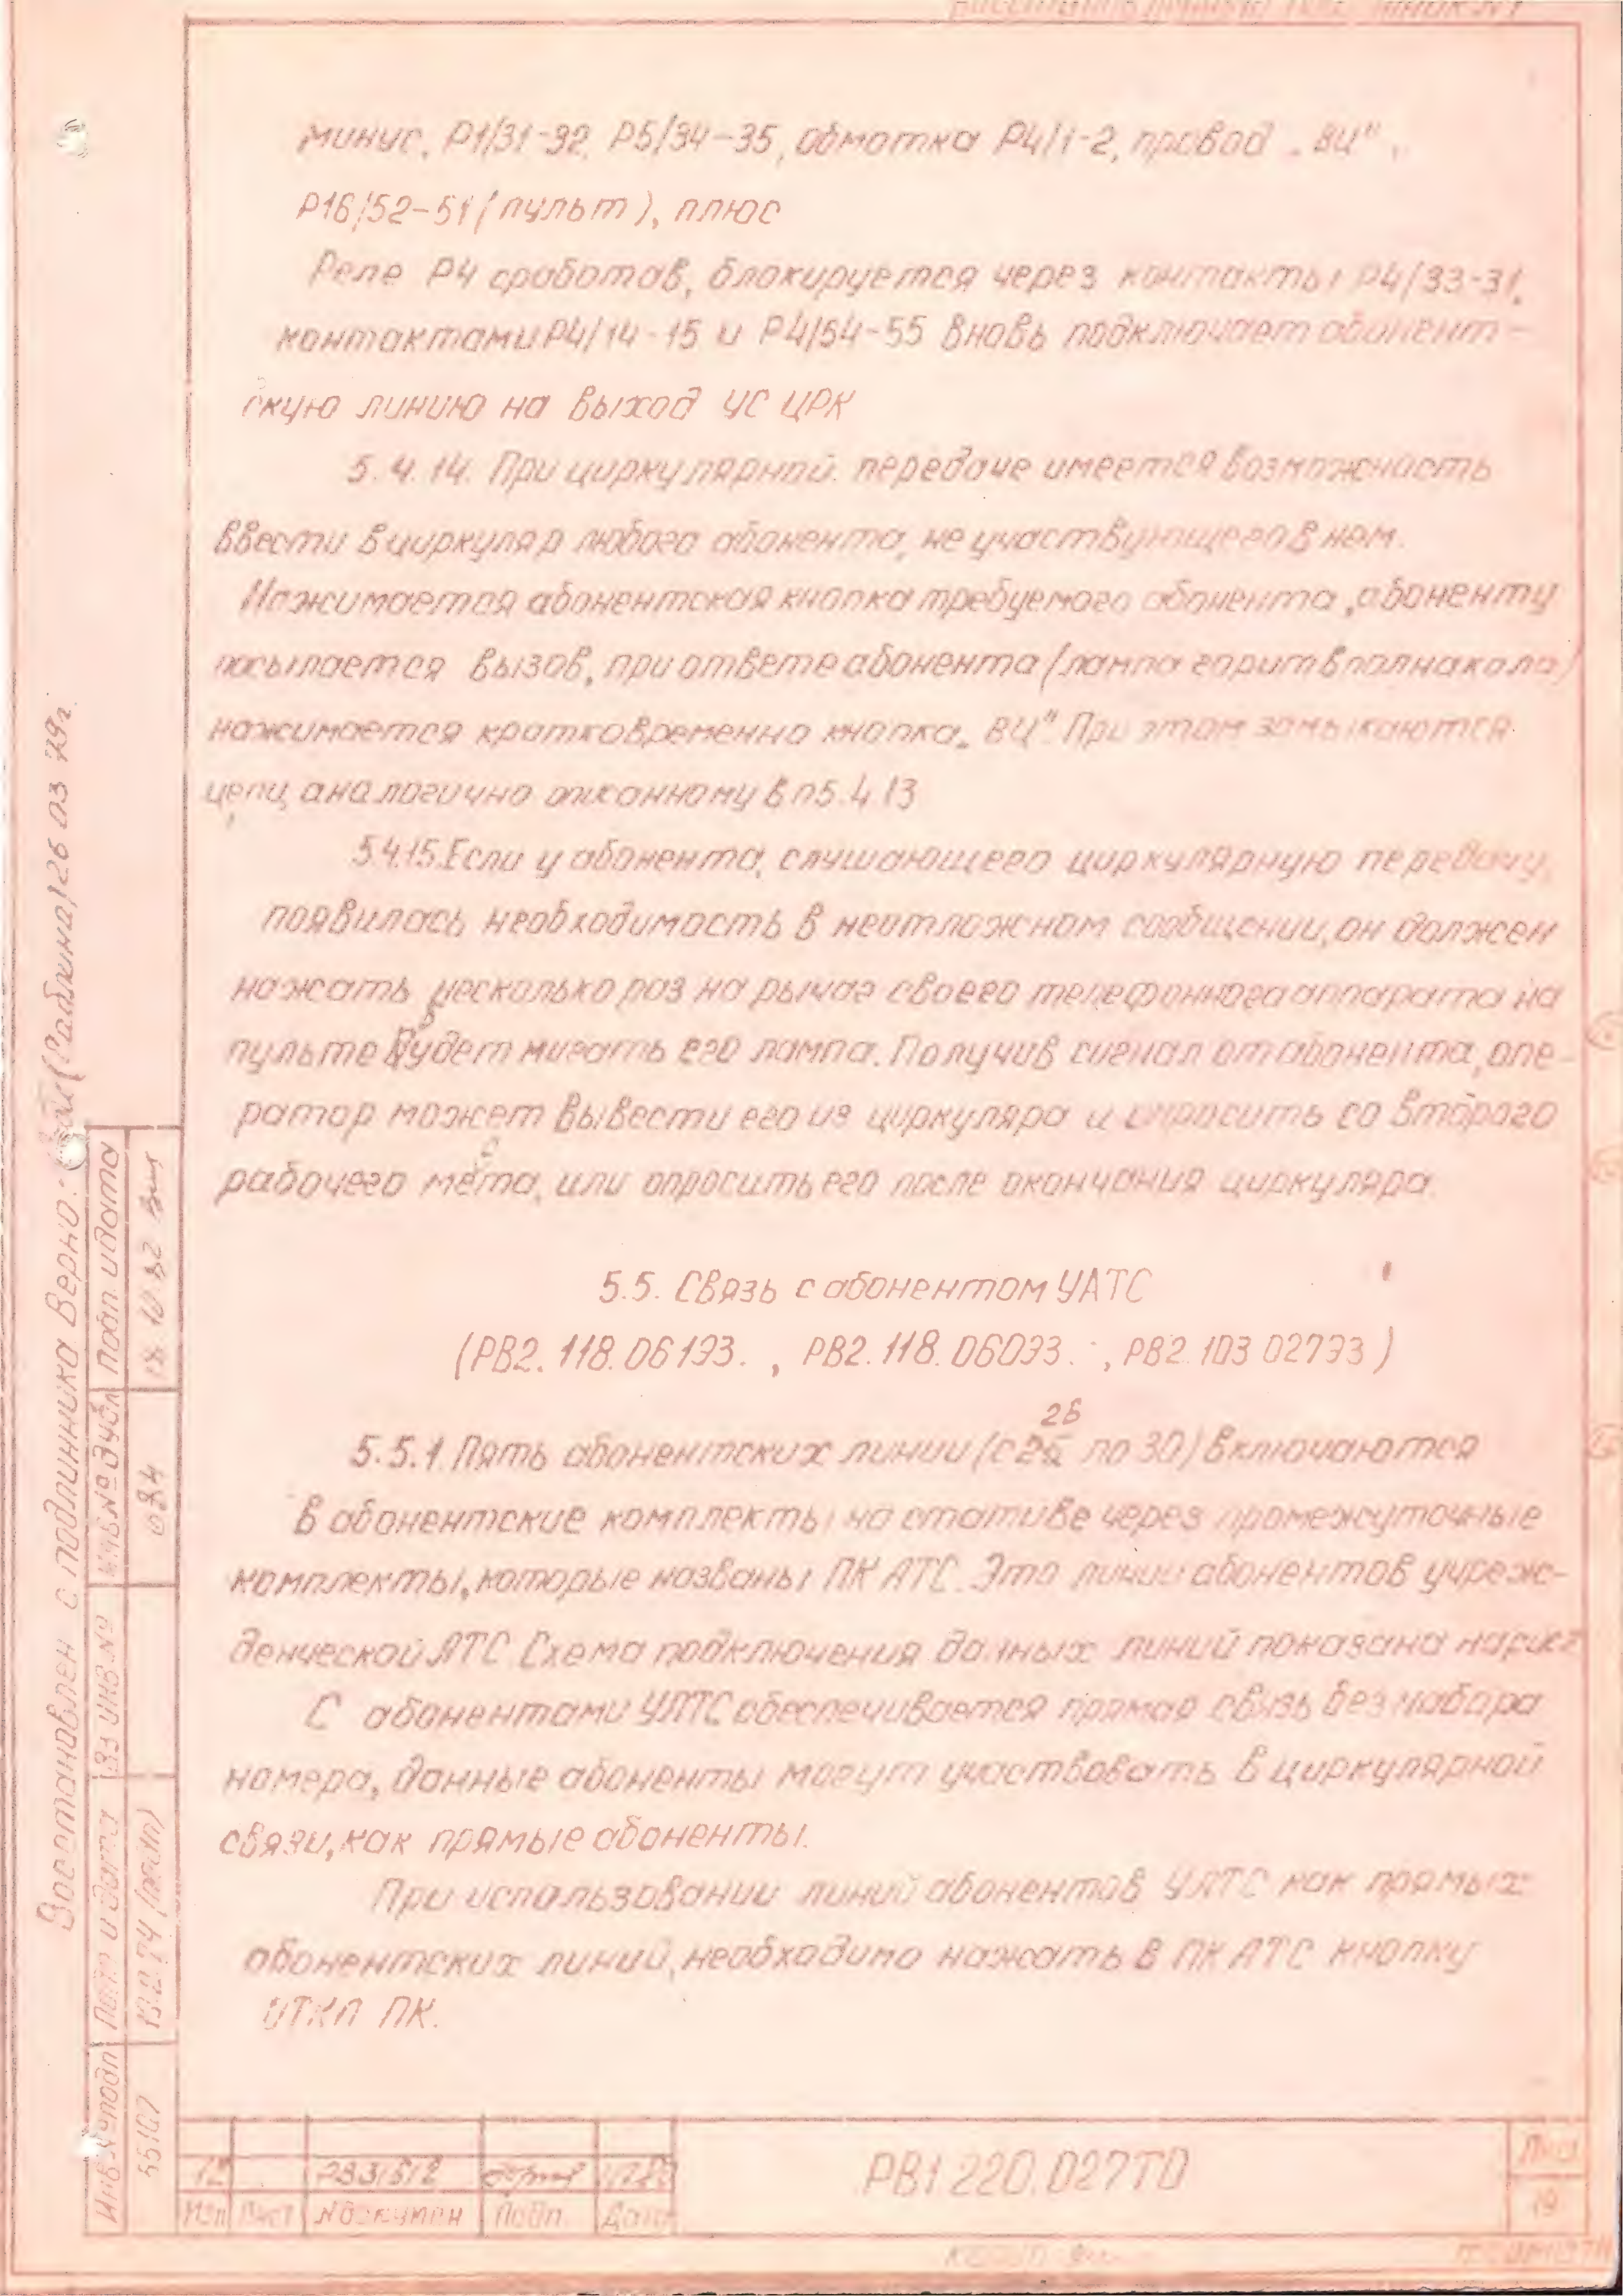 минус, Р1/31-32, Р5/34-35, обмотка Р4/1-2, провод „ВЦ",
Р16/52-51 (пульт), плюс
Реле Р4 сработав, блокируется через контакты Р4/33-31,
контактами Р4/14-15 и Р4/54-55 вновь подключает абонент-
скую линию на выход УС ЦРК
5.4.14. При циркулярной передаче имеется возможность
ввести в циркуляр любого абонента, не участвующего в нем.
Нажимается абонентская кнопка требуемого абонента, абоненту
посылается вызов, при ответе абонента (лампа горит вполнакала)
нажимается кратковременно кнопка „ВЦ". При этом замыкаются
цепи, аналогично описанному в п5.4.13
5.4.15. Если у абонента, слушающего циркулярную передачу,
появилась необходимость в неотложном сообщении, он должен
нажать несколько раз на рычаг своего телефонного аппарата на
пульте будет мигать его лампа. Получив сигнал от абонента, опе-
ратор может вывести его из циркуляра и опросить со второго
рабочего места, или опросить его после окончания циркуляра.
5.5. Связь с абонентом УАТС
(РВ2.118.061ЭЗ. , РВ2.118.060ЭЗ. , РВ2.103.027ЭЗ)
26
5.5.1. Пять абонентских линии (с 25 по 30) включаются
в абонентские комплекты на стативе через промежуточные
комплекты, которые названы ПК АТС. Это линии абонентов учреж-
денческой АТС. Схема подключения данных линий показана на рис
С абонентами УАТС обеспечивается прямая связь без набора
номера, данные абоненты могут участвовать в циркулярной
связи, как прямые абоненты.
При использовании линий абонентов УАТС как прямых
абонентских линий, необходимо нажать в ПК АТС кнопку
ОТКЛ ПК.
Восстановлен с подлинника Верно: (Рабкина) 26 03 79г.
Инв № подл Подп и дата Вз инв № Инв № дубл Подп. и дата
55107
084
12
РВ1.220.027ТО
Лист
19
Изм Лист № докумен Подп. Дата